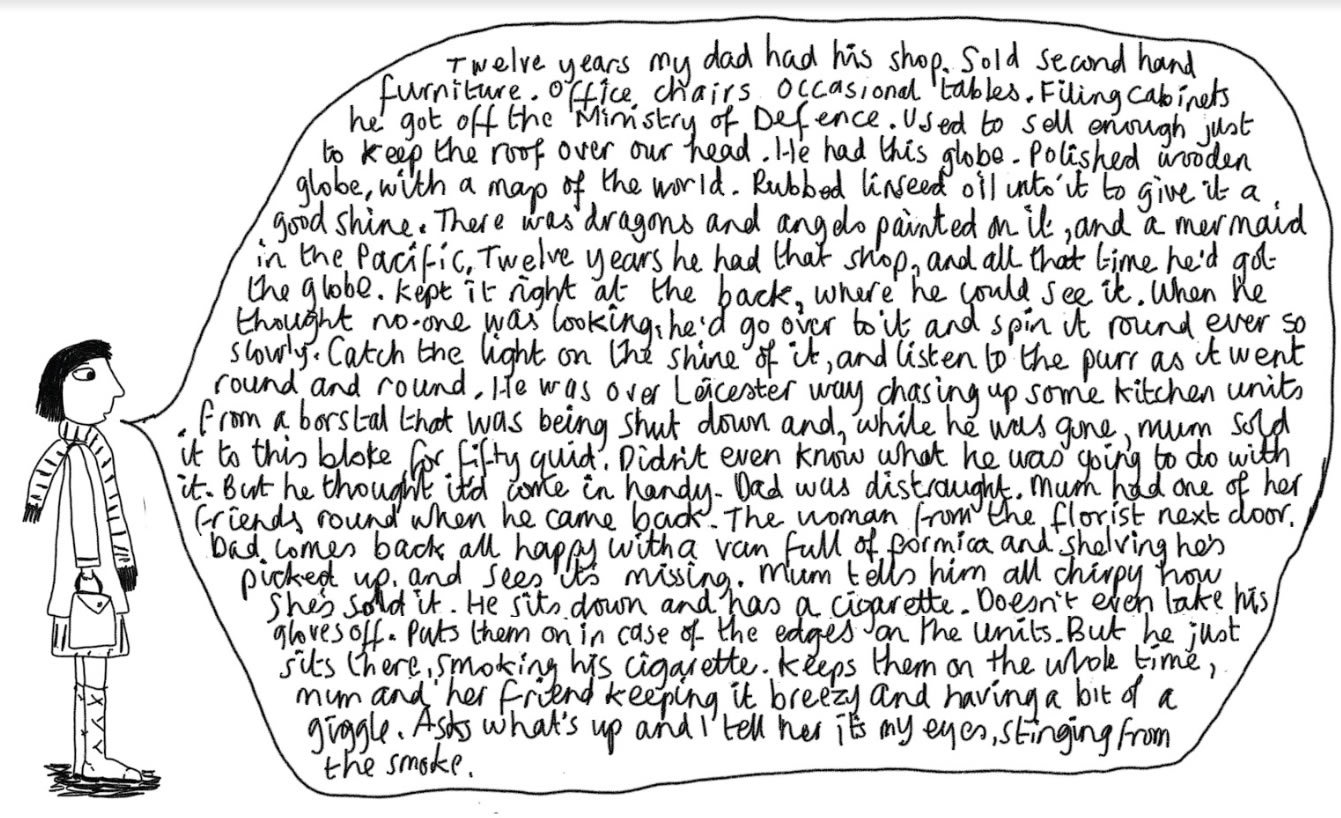 Twelve years my dad had his shop. Sold second hand
furniture. Office chairs. Occasional tables. Filing cabinets
he got off the Ministry of Defence. Used to sell enough just
to keep the roof over our head. He had this globe. Polished wooden
globe, with a map of the world. Rubbed linseed oil into it to give it a
good shine. There was dragons and angels painted on it, and a mermaid
in the Pacific. Twelve years he had that shop, and all that time he'd got
the globe. Kept it right at the back, where he could see it. When he
thought no-one was looking, he'd go over to it and spin it round ever so
slowly. Catch the light on the shine of it, and listen to the purr as it went
round and round. He was over Leicester way chasing up some kitchen units
from a borstal that was being shut down and, while he was gone, mum sold
it to this bloke for fifty quid. Didn't even know what he was going to do with
it. But he thought it'd come in handy. Dad was distraught. Mum had one of her
friends round when he came back. The woman from the florist next door.
Dad comes back all happy with a van full of formica and shelving he's
picked up, and sees it's missing. Mum tells him all chirpy how
she's sold it. He sits down and has a cigarette. Doesn't even take his
gloves off. Puts them on in case of the edges on the units. But he just
sits there, smoking his cigarette. Keeps them on the whole time,
mum and her friend keeping it breezy and having a bit of a
giggle. Asks what's up and I tell her it's my eyes, stinging from
the smoke.